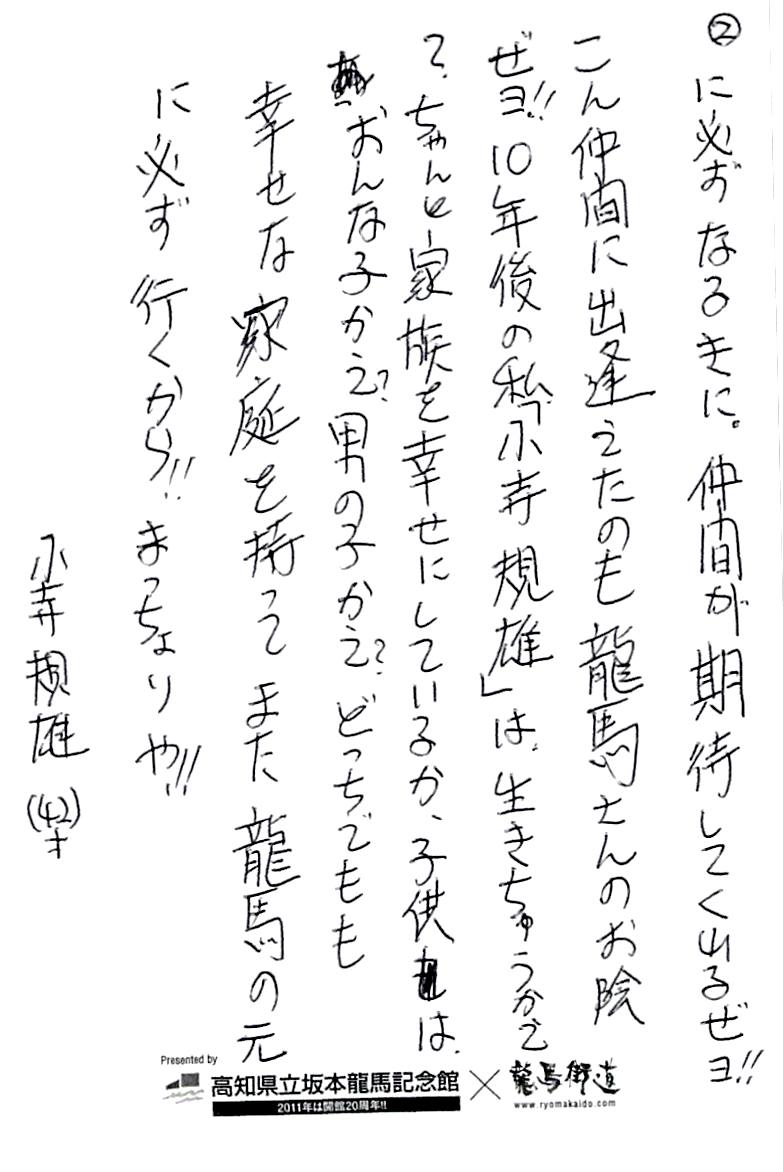 ②
に必ずなるきに。仲間が期待してくれるぜヨ!!
こん仲間に出逢えたのも龍馬さんのお陰
ぜヨ!! 10年後の私「小寺規雄」は、生きちゅうかえ
?、ちゃんと家族を幸せにしているか、子供は、
おんな子かえ?男の子かえ?どっちでもも
幸せな家庭を持ってまた龍馬の元
に必ず行くから!!まっちょりや!!
小寺規雄(42)才
Presented by
高知県立坂本龍馬記念館×龍馬街道
2011年は開館20周年!!
www.ryomakaido.com